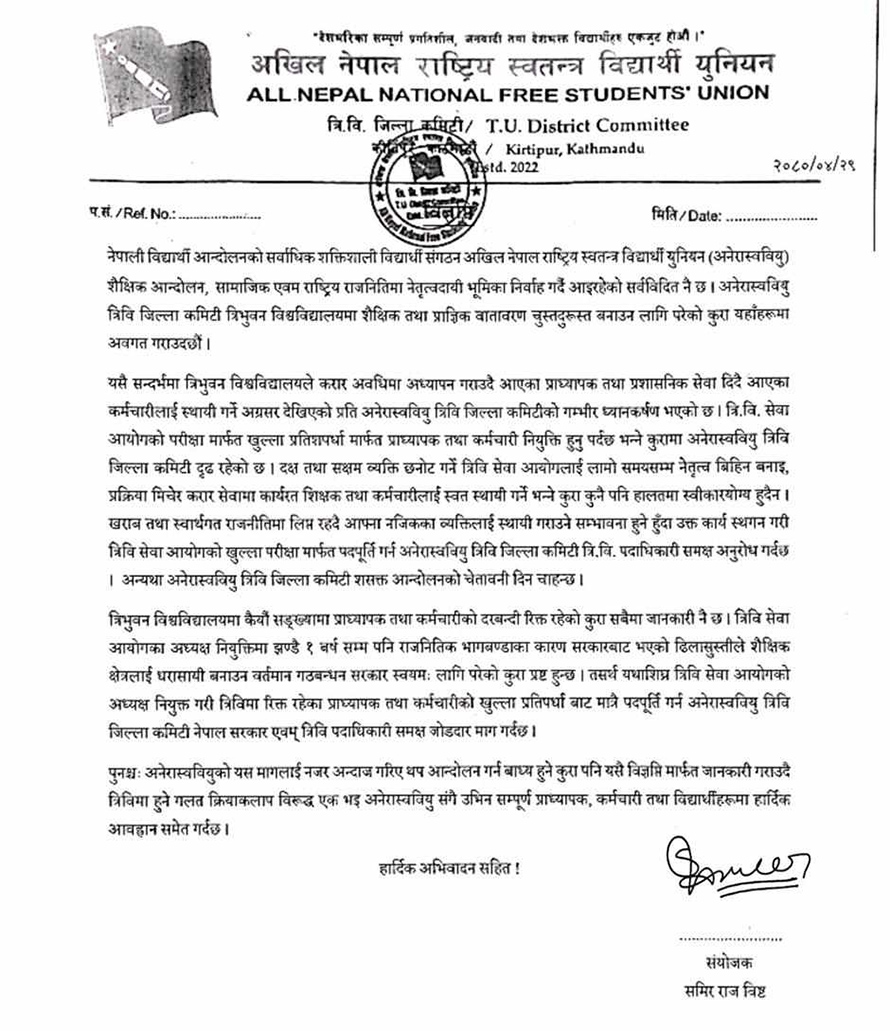 "देशभरिका सम्पूर्ण प्रगतिशील, जनवादी तथा देशभक्त विद्यार्थीहरु एकजुट होऔं ।"
अखिल नेपाल राष्ट्रिय स्वतन्त्र विद्यार्थी युनियन
ALL NEPAL NATIONAL FREE STUDENTS' UNION
त्रि.वि. जिल्ला कमिटी/ T.U. District Committee
/ Kirtipur, Kathmandu
Estd. 2022
२०८०/०४/२९
प.सं./Ref. No.: ......................
मिति/Date: ........................
नेपाली विद्यार्थी आन्दोलनको सर्वाधिक शक्तिशाली विद्यार्थी संगठन अखिल नेपाल राष्ट्रिय स्वतन्त्र विद्यार्थी युनियन (अनेरास्ववियु)
शैक्षिक आन्दोलन, सामाजिक एवम राष्ट्रिय राजनितिमा नेतृत्वदायी भूमिका निर्वाह गर्दै आइरहेको सर्वविदित नै छ । अनेरास्ववियु
त्रिवि जिल्ला कमिटी त्रिभुवन विश्वविद्यालयमा शैक्षिक तथा प्राज्ञिक वातावरण चुस्तदुरूस्त बनाउन लागि परेको कुरा यहाँहरूमा
अवगत गराउदछौं ।
यसै सन्दर्भमा त्रिभुवन विश्वविद्यालयले करार अवधिमा अध्यापन गराउदै आएका प्राध्यापक तथा प्रशासनिक सेवा दिदै आएका
कर्मचारीलाई स्थायी गर्ने अग्रसर देखिएको प्रति अनेरास्ववियु त्रिवि जिल्ला कमिटीको गम्भीर ध्यानकर्षण भएको छ । त्रि.वि. सेवा
आयोगको परीक्षा मार्फत खुल्ला प्रतिशपर्धा मार्फत प्राध्यापक तथा कर्मचारी नियुक्ति हुनु पर्दछ भन्ने कुरामा अनेरास्ववियु त्रिवि
जिल्ला कमिटी दृढ रहेको छ । दक्ष तथा सक्षम व्यक्ति छनोट गर्ने त्रिवि सेवा आयोगलाई लामो समयसम्म नेतृत्व बिहिन बनाइ,
प्रक्रिया मिचेर करार सेवामा कार्यरत शिक्षक तथा कर्मचारीलाई स्वत स्थायी गर्ने भन्ने कुरा कुनै पनि हालतमा स्वीकारयोग्य हुदैन ।
खराब तथा स्वार्थगत राजनीतिमा लिप्त रहदै आफ्ना नजिकका व्यक्तिलाई स्थायी गराउने सम्भावना हुने हुँदा उक्त कार्य स्थगन गरी
त्रिवि सेवा आयोगको खुल्ला परीक्षा मार्फत पदपूर्ति गर्न अनेरास्ववियु त्रिवि जिल्ला कमिटी त्रि.वि. पदाधिकारी समक्ष अनुरोध गर्दछ
। अन्यथा अनेरास्ववियु त्रिवि जिल्ला कमिटी शसक्त आन्दोलनको चेतावनी दिन चाहन्छ ।
त्रिभुवन विश्वविद्यालयमा कैयौं सङ्ख्यामा प्राध्यापक तथा कर्मचारीको दरबन्दी रिक्त रहेको कुरा सबैमा जानकारी नै छ । त्रिवि सेवा
आयोगका अध्यक्ष नियुक्तिमा झण्डै १ बर्ष सम्म पनि राजनितिक भागबण्डाका कारण सरकारबाट भएको ढिलासुस्तीले शैक्षिक
क्षेत्रलाई धरासायी बनाउन वर्तमान गठबन्धन सरकार स्वयमः लागि परेको कुरा प्रष्ट हुन्छ । तसर्थ यथाशिघ्र त्रिवि सेवा आयोगको
अध्यक्ष नियुक्त गरी त्रिविमा रिक्त रहेका प्राध्यापक तथा कर्मचारीको खुल्ला प्रतिपर्धा बाट मात्रै पदपूर्ति गर्न अनेरास्ववियु त्रिवि
जिल्ला कमिटी नेपाल सरकार एवम् त्रिवि पदाधिकारी समक्ष जोडदार माग गर्दछ ।
पुनश्चः अनेरास्ववियुको यस मागलाई नजर अन्दाज गरिए थप आन्दोलन गर्न बाध्य हुने कुरा पनि यसै विज्ञप्ति मार्फत जानकारी गराउदै
त्रिविमा हुने गलत क्रियाकलाप विरूद्ध एक भइ अनेरास्ववियु संगै उभिन सम्पूर्ण प्राध्यापक, कर्मचारी तथा विद्यार्थीहरूमा हार्दिक
आवह्वान समेत गर्दछ ।
हार्दिक अभिवादन सहित !
........................
संयोजक
समिर राज विष्ट